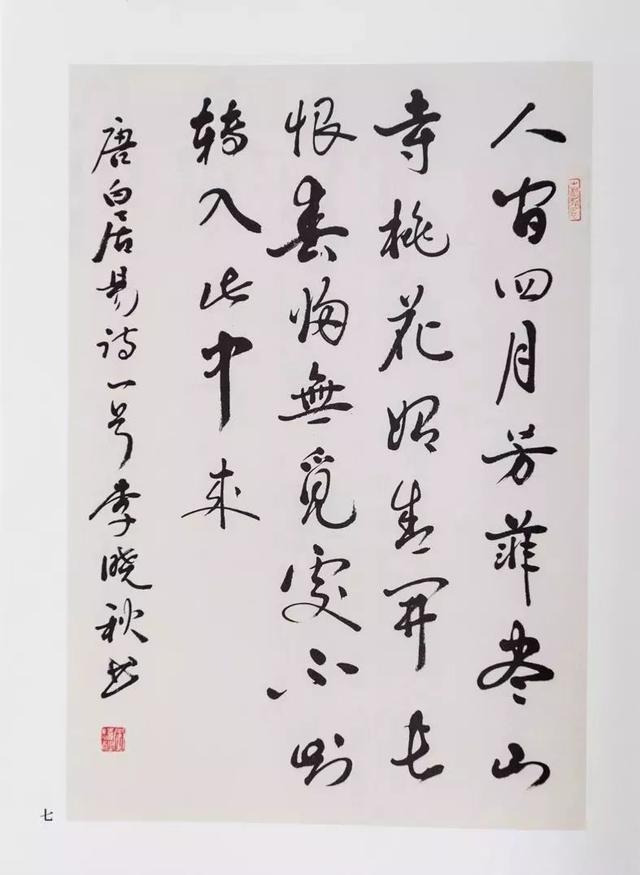 人间四月芳菲尽山
寺桃花始盛開长
恨春归無覓處不知
转入此中来
唐白居易诗一首李晓秋书
七